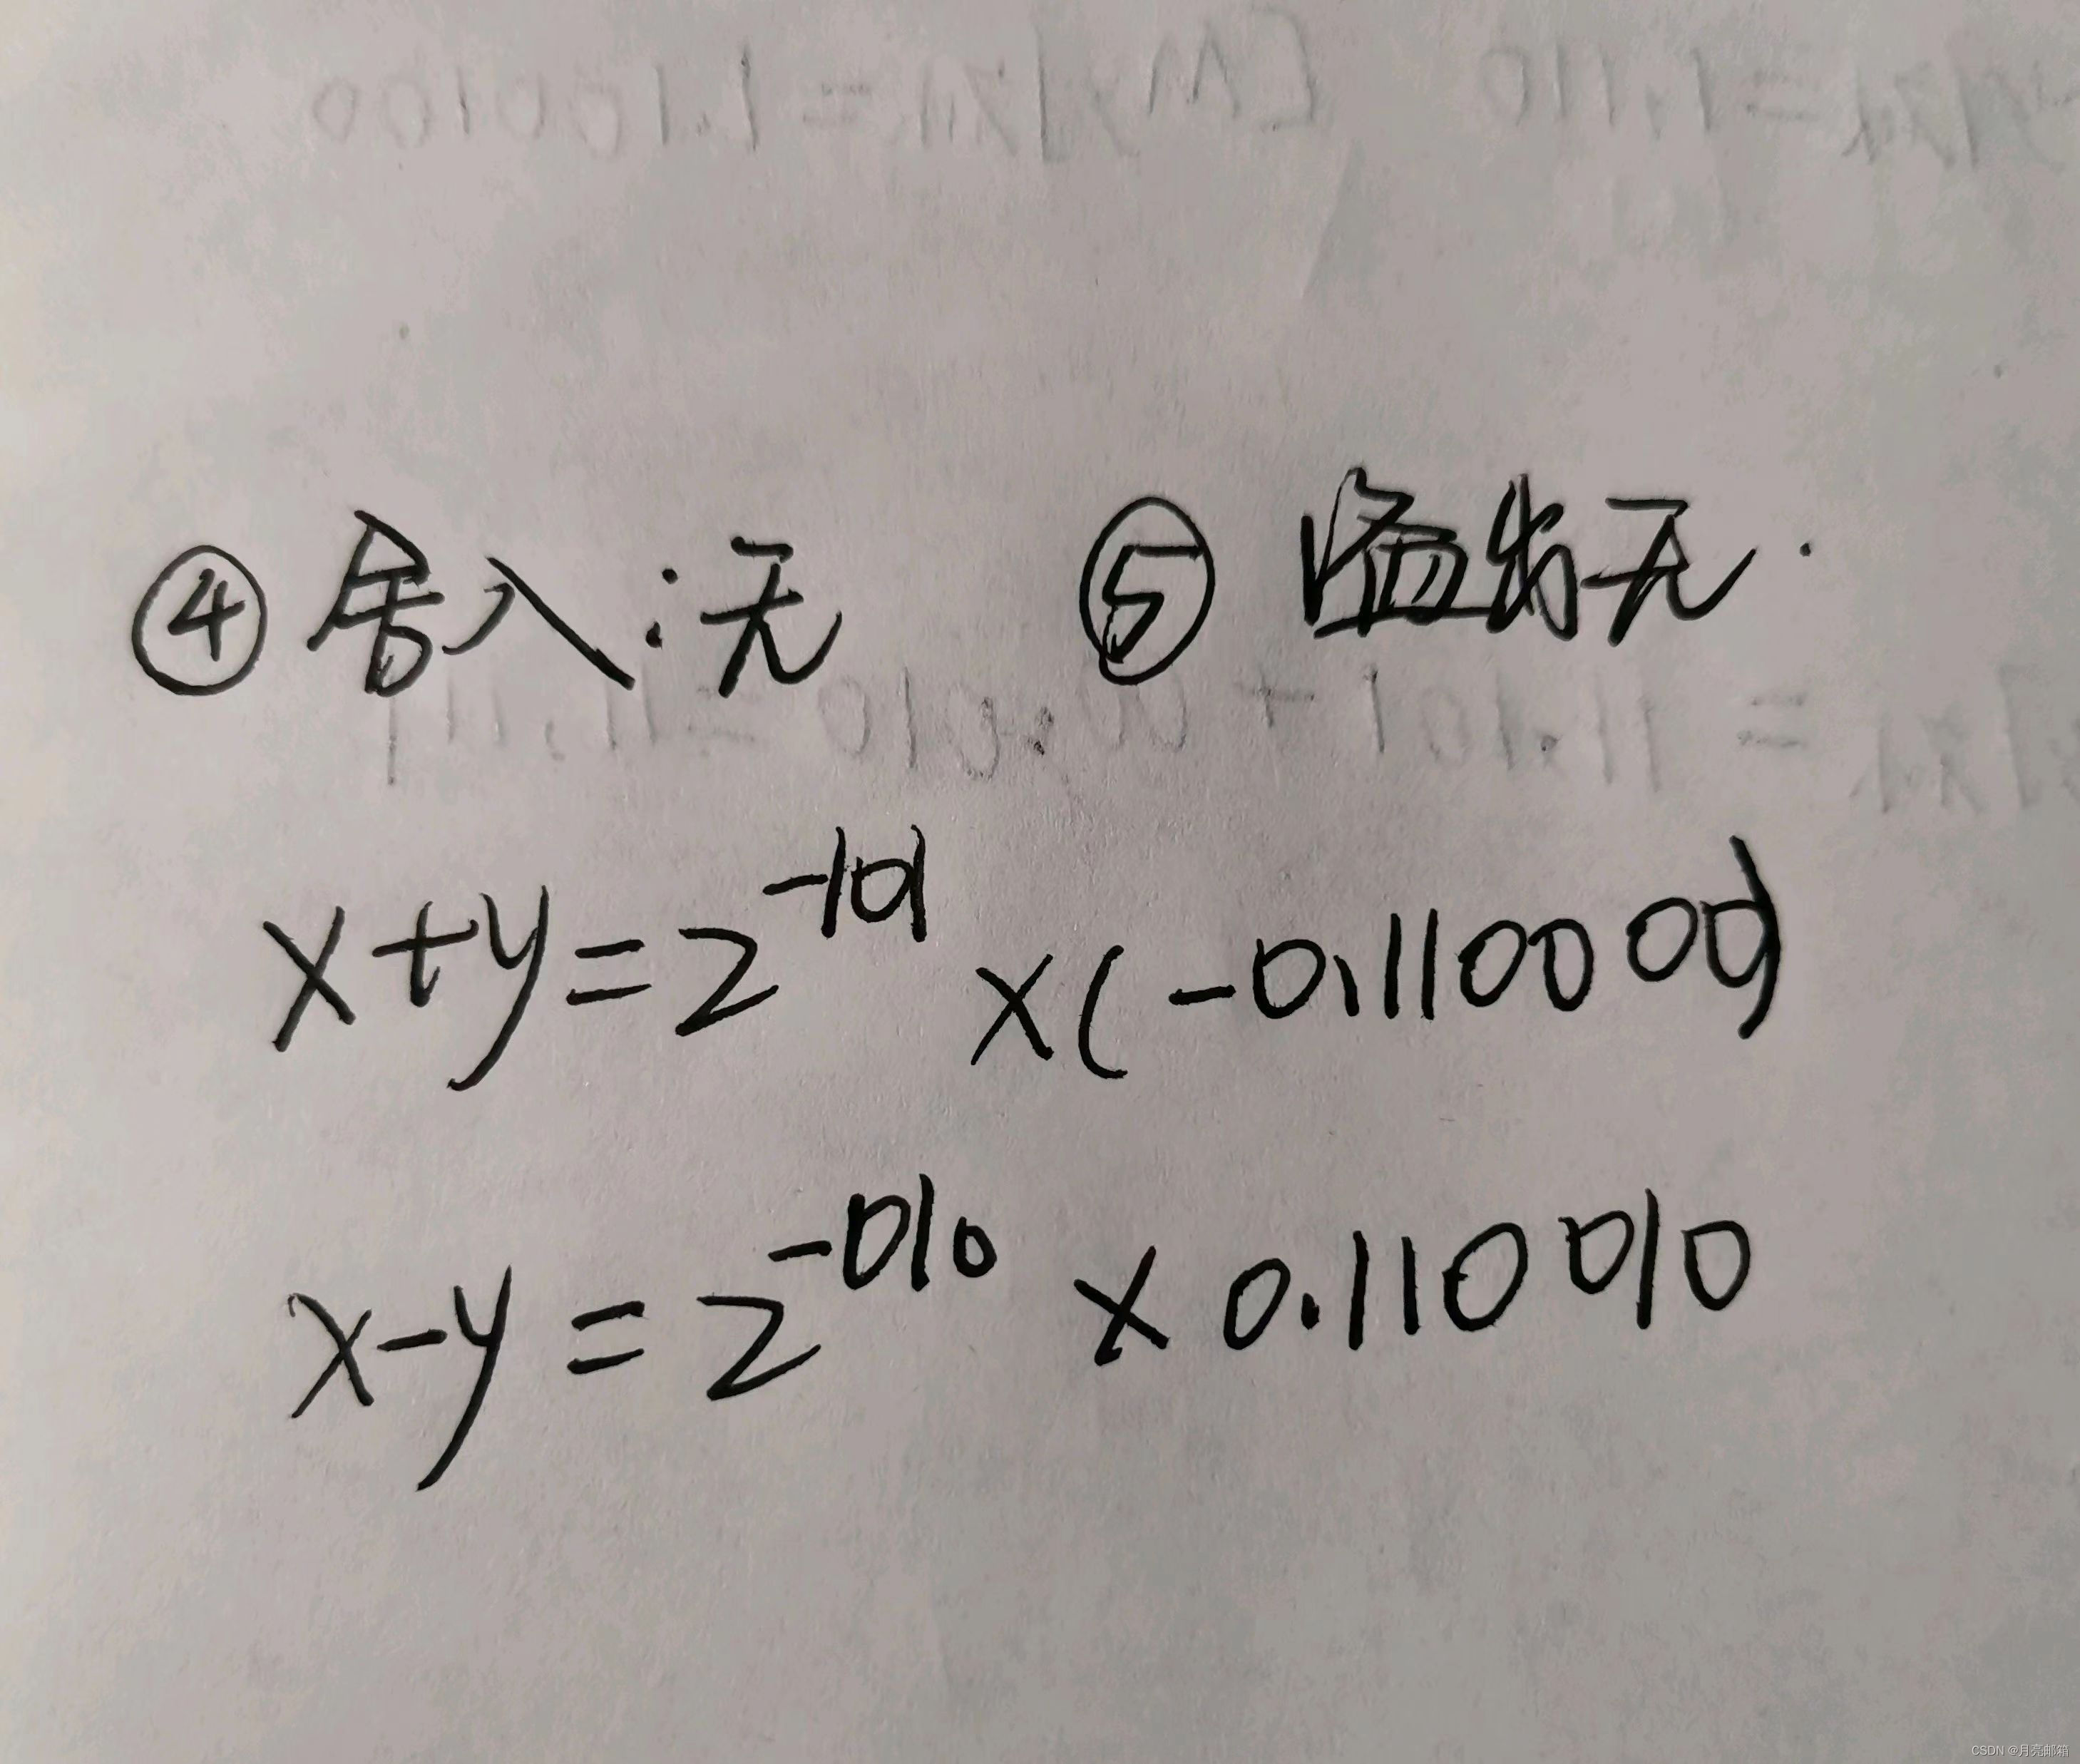 ④ 舍入:无 ⑤ 溢出无.
x+y=2^-101 ×(-0.110000)
x-y=2^-010 ×0.110010
CSDN @月亮邮箱